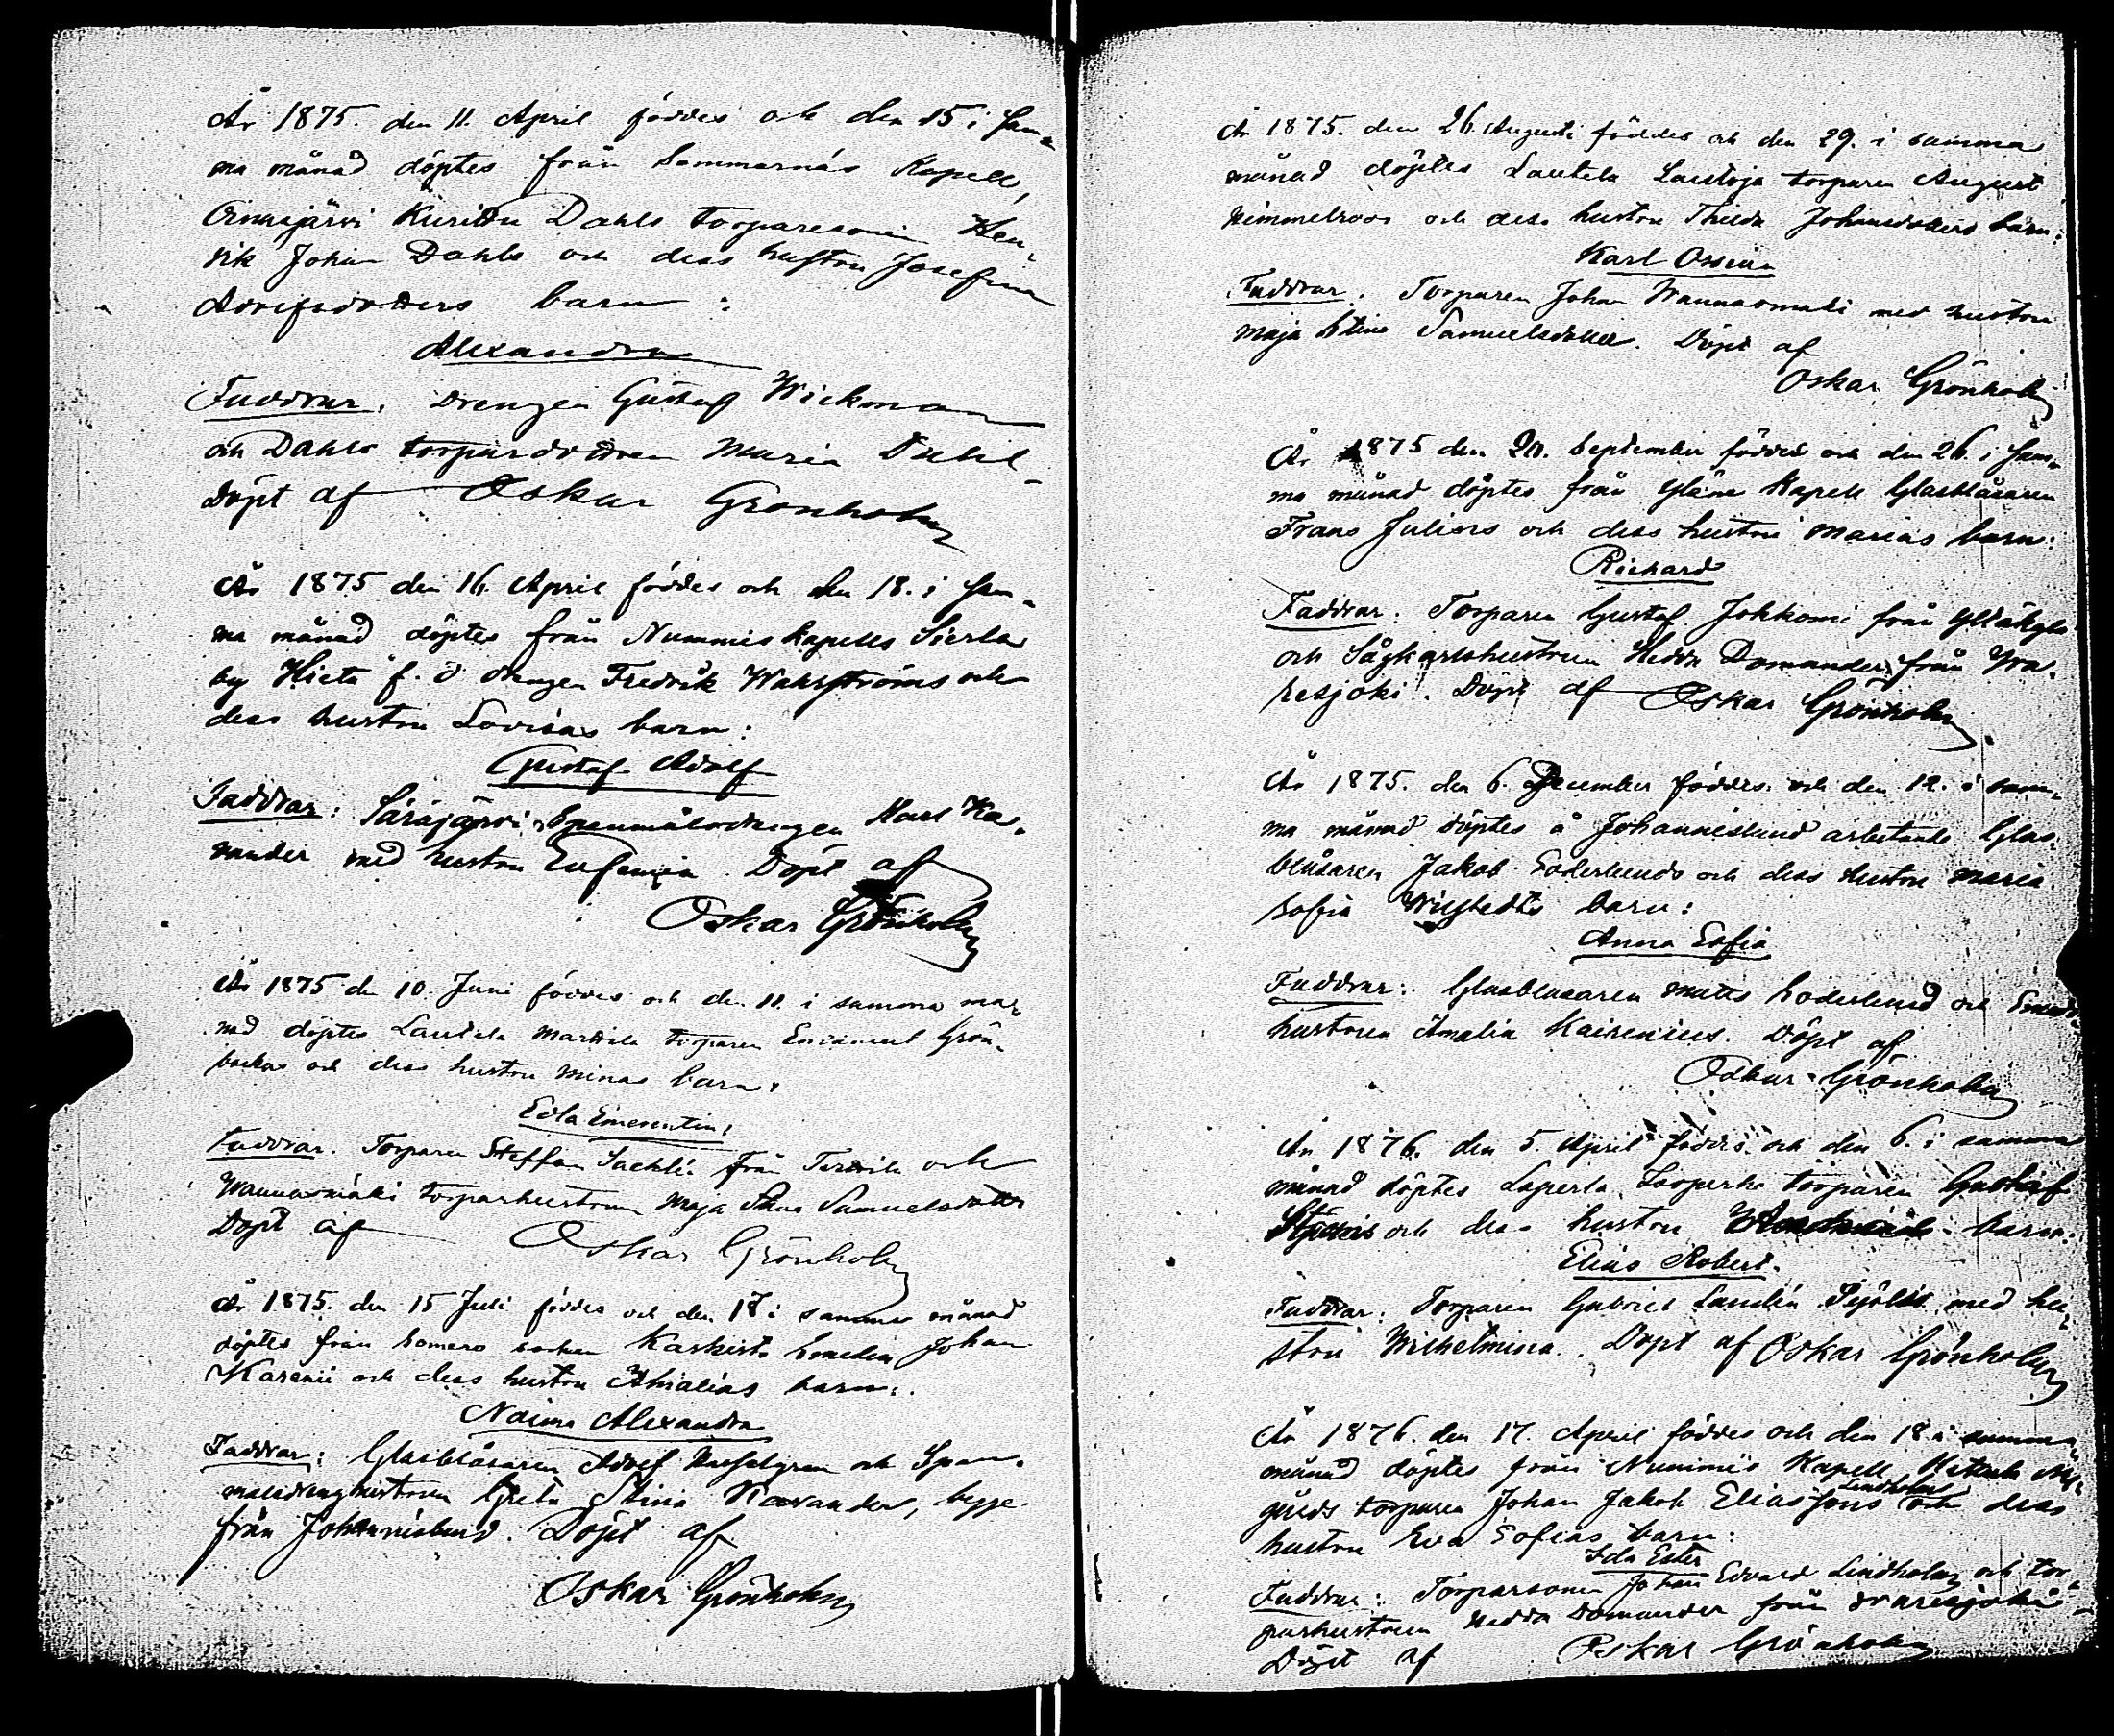 År 1875. den 11. April föddes och den 15 i sam-
ma månad döptes från Sammarnäs Kapell,
Dahls torparesonen Hen-
rik Johan Dahls och dess hustru Josefina
Adolfsdotters barn:
Alexandra
Faddrar. Drengen Gustaf Wickman
och Dahls torpardottren Maria Dahl
Döpt af Oskar Grönholm
År 1875 den 16. April föddes och den 18. i sam-
ma månad döptes från Nummis Kapells Sierla
by Hieta f. d drengen Fredrik Wahlströms och
dess hustru Lovisas barn:
Gustaf Adolf
Faddrar: Säräjärvi Spanmålsdrengen Karl Ka-
vander med hustru Eufemia. Döpt af
Oskar Grönholm
År 1875 den 10. Juni föddes och den 11. i samma må-
nad döptes Lautela Marttila torparen Emanuel Grön-
backas och dess hustru Minas barn:
Edla Emerentia,
Faddrar. Torparen Steffan från och
Wannasmäki torparhustrun Maja Stina Samuelsdotter
Döpt af Oskar Grönholm
År 1875. den 15 Juli föddes och den 18 i samma månad
döptes från Somero socken Kaskisto Smeden Johan
Karenii och dess hustru Amalias barn:
Naima Alexandra
Faddrar: Glasblåsaren Adolf och Span-
målsdrenghustrun Greta Stina Kavander, begge
från Johanneslund. Döpt af
Oskar Grönholm
År 1875. den 26. Augusti föddes och den 29. i samma
månad döptes Lautela Laustoja torparen August
Himmelroos och dess hustru Thilda Johansdotters barn:
Karl Ossian
Faddrar. Torparen Johan Wannasmäki med hustru
Maja Stina Samuelsdotter. Döpt af
Oskar Grönholm
År 1875 den 20. September föddes och den 26. i sam-
ma månad döptes från Yläne Kapell Glasblåsaren
Frans Julins och dess hustru Marias barn:
Richard
Faddrar: Torparen Gustaf Johkomi från
och Sågkarlshustrun Hedda Domander från Wa-
resjoki. Döpt af Oskar Grönholm
År 1875. den 6. December föddes och den 12. i sam-
ma månad döptes å Johanneslund arbetande Glas-
blåsaren Jakob Soderlunds och dess hustru Maria
Sofia Wigstedts barn:
Anna Sofia
Faddrar: Glasblåsaren Matts Soderlund och Smeds-
hustrun Amalia Kairenius. Döpt af
Oskar Grönholm
År 1876. den 5. April föddes och den 6. i samma
månad döptes Laperla, torparen Gustaf
och dess hustru barn:
Elias Robert.
Faddrar: Torparen Gabriel Landén med hu-
stru Wilhelmina. Döpt af Oskar Grönholm
År 1876. den 17. April föddes och den 18. i samma
månad döptes från Nummis Kapell Ny-
Lindholms
gårds torparen Johan Jakob Eliassons och dess
hustru Eva Sofias barn:
Ida Ester
Faddrar: Torparsonen Johan Edvard Lindholm och tor-
parhustrun Hedda Domander från Waresjoki
Döpt af Oskar Grönholm